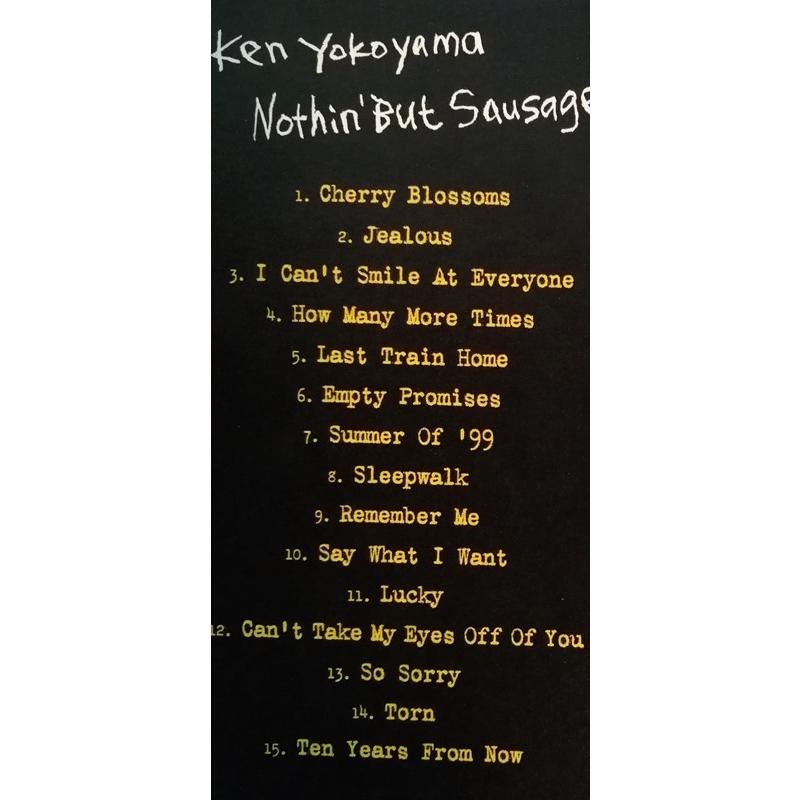 Ken Yokoyama
Nothin' But Sausage
1. Cherry Blossoms
2. Jealous
3. I Can't Smile At Everyone
4. How Many More Times
5. Last Train Home
6. Empty Promises
7. Summer Of '99
8. Sleepwalk
9. Remember Me
10. Say What I Want
11. Lucky
12. Can't Take My Eyes Off Of You
13. So Sorry
14. Torn
15. Ten Years From Now